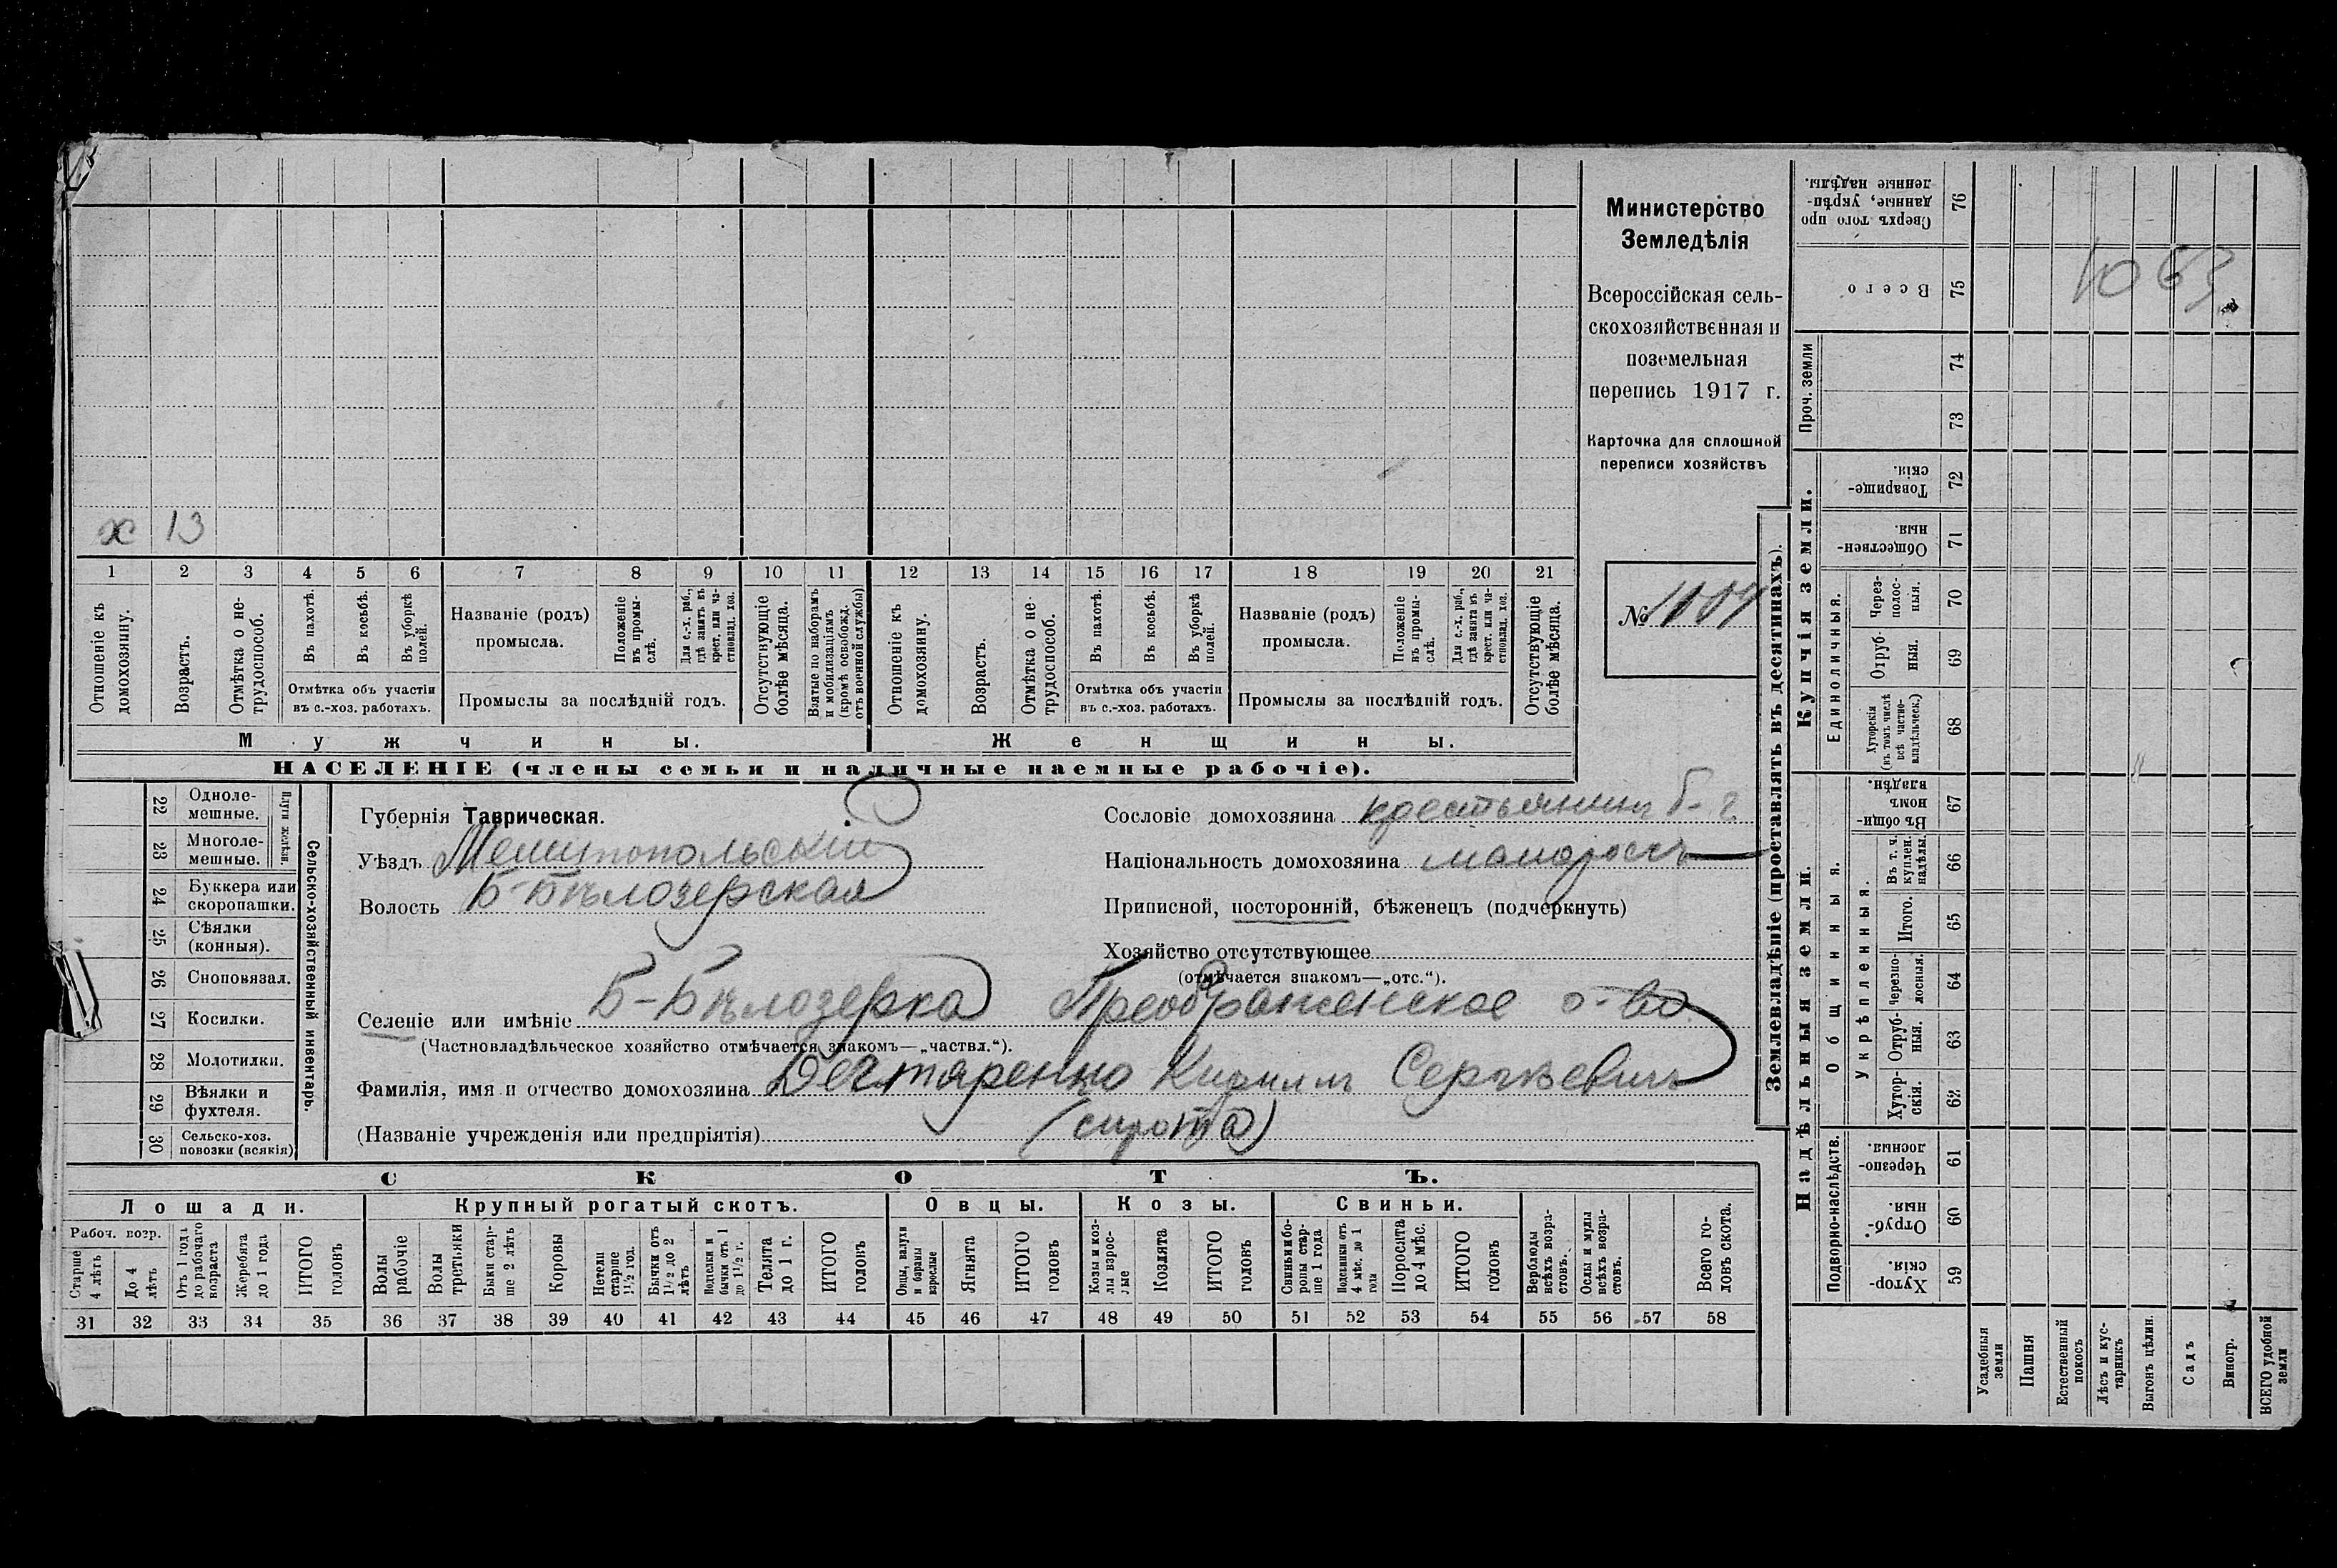 х 13
1 2 3 4 5 6 7 8 9 10 11 12 13 14 15 16 17 18 19 20 21
Отношеніе къ домохозяину.
Возрастъ.
Отмѣтка о не-
трудоспособ.
Въ пахотѣ.
Въ косьбѣ.
Въ уборкѣ
полей.
Отмѣтка объ участіи
въ с.-хоз. работахъ.
Названіе (родъ)
промысла.
Положеніе
въ промы-
слѣ.
Для с.-х. раб.,
гдѣ занятъ въ
крест. или ча-
стновлад. хоз.
Промыслы за послѣдній годъ.
Отсутствующіе
болѣе мѣсяца.
Взятые по наборамъ
и мобилизаціямъ
(кромѣ освобожд.
отъ военной службы)
Отношеніе къ
домохозяину.
Возрастъ.
Отмѣтка о не-
трудоспособ.
Въ пахотѣ.
Въ косьбѣ.
Въ уборкѣ
полей.
Отмѣтка объ участіи
въ с.-хоз. работахъ.
Названіе (родъ)
промысла.
Положеніе
въ промы-
слѣ.
Для с.-х. раб.,
гдѣ занятъ въ
крест. или ча-
стновлад. хоз.
Промыслы за послѣдній годъ.
Отсутствующіе
болѣе мѣсяца.
Мужчины. Женщины.
НАСЕЛЕНІЕ (члены семьи и наличные наемные рабочіе).
Министерство
Земледѣлія
Всероссійская сель-
скохозяйственная и
поземельная
перепись 1917 г.
Карточка для сплошной
переписи хозяйствъ
№
22 Одноле-
мешные.
23 Многоле-
мешные.
Плуги желѣзн.
24 Буккера или
скоропашки.
25 Сѣялки
(конныя).
26 Сноповязал.
27 Косилки.
28 Молотилки.
29 Вѣялки и
фухтеля.
30 Сельско-хоз.
повозки (всякія)
Сельско-хозяйственный инвентарь.
Губернія Таврическая.
Уѣздъ Мелитопольскій
Волость Б-Бѣлозерская
Сословіе домохозяина крестьянинъ
Національность домохозяина малороссъ
Приписной, посторонній, бѣженецъ (подчеркнуть)
Хозяйство отсутствующее
(отмѣчается знакомъ—„отс.“).
Селеніе или имѣніе Б-Бѣлозерка Преображенское о-во
(Частновладѣльческое хозяйство отмѣчается знакомъ—„частвл.“).
Фамилія, имя и отчество домохозяина Дегтяренко Кириллъ Сергѣевичъ
(Названіе учрежденія или предпріятія) (сирота)
СКОТЪ.
Лошади. Крупный рогатый скотъ. Овцы. Козы. Свиньи.
Рабоч. возр.
Старше
4 лѣтъ
До 4
лѣтъ
Отъ 1 года
до рабочаго
возраста
Жеребята
до 1 года
ИТОГО
головъ
Волы
рабочіе
Волы
третьяки
Быки стар-
ше 2 лѣтъ
Коровы
Нетели
старше
1½ год.
Бычки отъ
1½ до 2
лѣтъ
Подтелки и
бычки отъ 1
до 1½ г.
Телята
до 1 г.
ИТОГО
головъ
Овцы, валухи
и бараны
взрослые
Ягнята
ИТОГО
головъ
Козы и коз-
лы взрос-
лые
Козлята
ИТОГО
головъ
Свиньи и бо-
ровы стар-
ше 1 года
Подсвинки отъ
4 мѣс. до 1
года
Поросята
до 4 мѣс.
ИТОГО
головъ
Верблюды
всѣхъ возра-
стовъ.
Ослы и мулы
всѣхъ возра-
стовъ.
Всего го-
ловъ скота.
31 32 33 34 35 36 37 38 39 40 41 42 43 44 45 46 47 48 49 50 51 52 53 54 55 56 57 58
Землевладѣніе (проставлять въ десятинахъ).
Надѣльныя земли. Купчія земли. Проч. земли
Подворно-наслѣдств.
Общинныя.
Укрѣпленныя.
Единоличныя.
Хутор-
скія. 59
Отруб-
ныя. 60
Черезпо-
лосныя. 61
Хутор-
скія. 62
Отруб-
ныя. 63
Черезпо-
лосныя. 64
Итого. 65
Въ т. ч.
куплен.
надѣлы 66
Въ общи-
номъ
владѣн. 67
Хуторскія
(въ томъ числѣ
всѣ частно-
владѣльческ.) 68
Отруб-
ныя. 69
Через-
полос-
ныя. 70
Обществен-
ныя. 71
Товарище-
скія. 72
73
74
Всего 75
Сверхъ того про
данные, укрѣп-
ленные надѣлы. 76
1063
Усадебныя
земли
Пашня
Естественный
покосъ
Лѣсъ и кус-
тарникъ
Выгонъ цѣлин.
Садъ
Виногр.
ВСЕГО удобной
земли